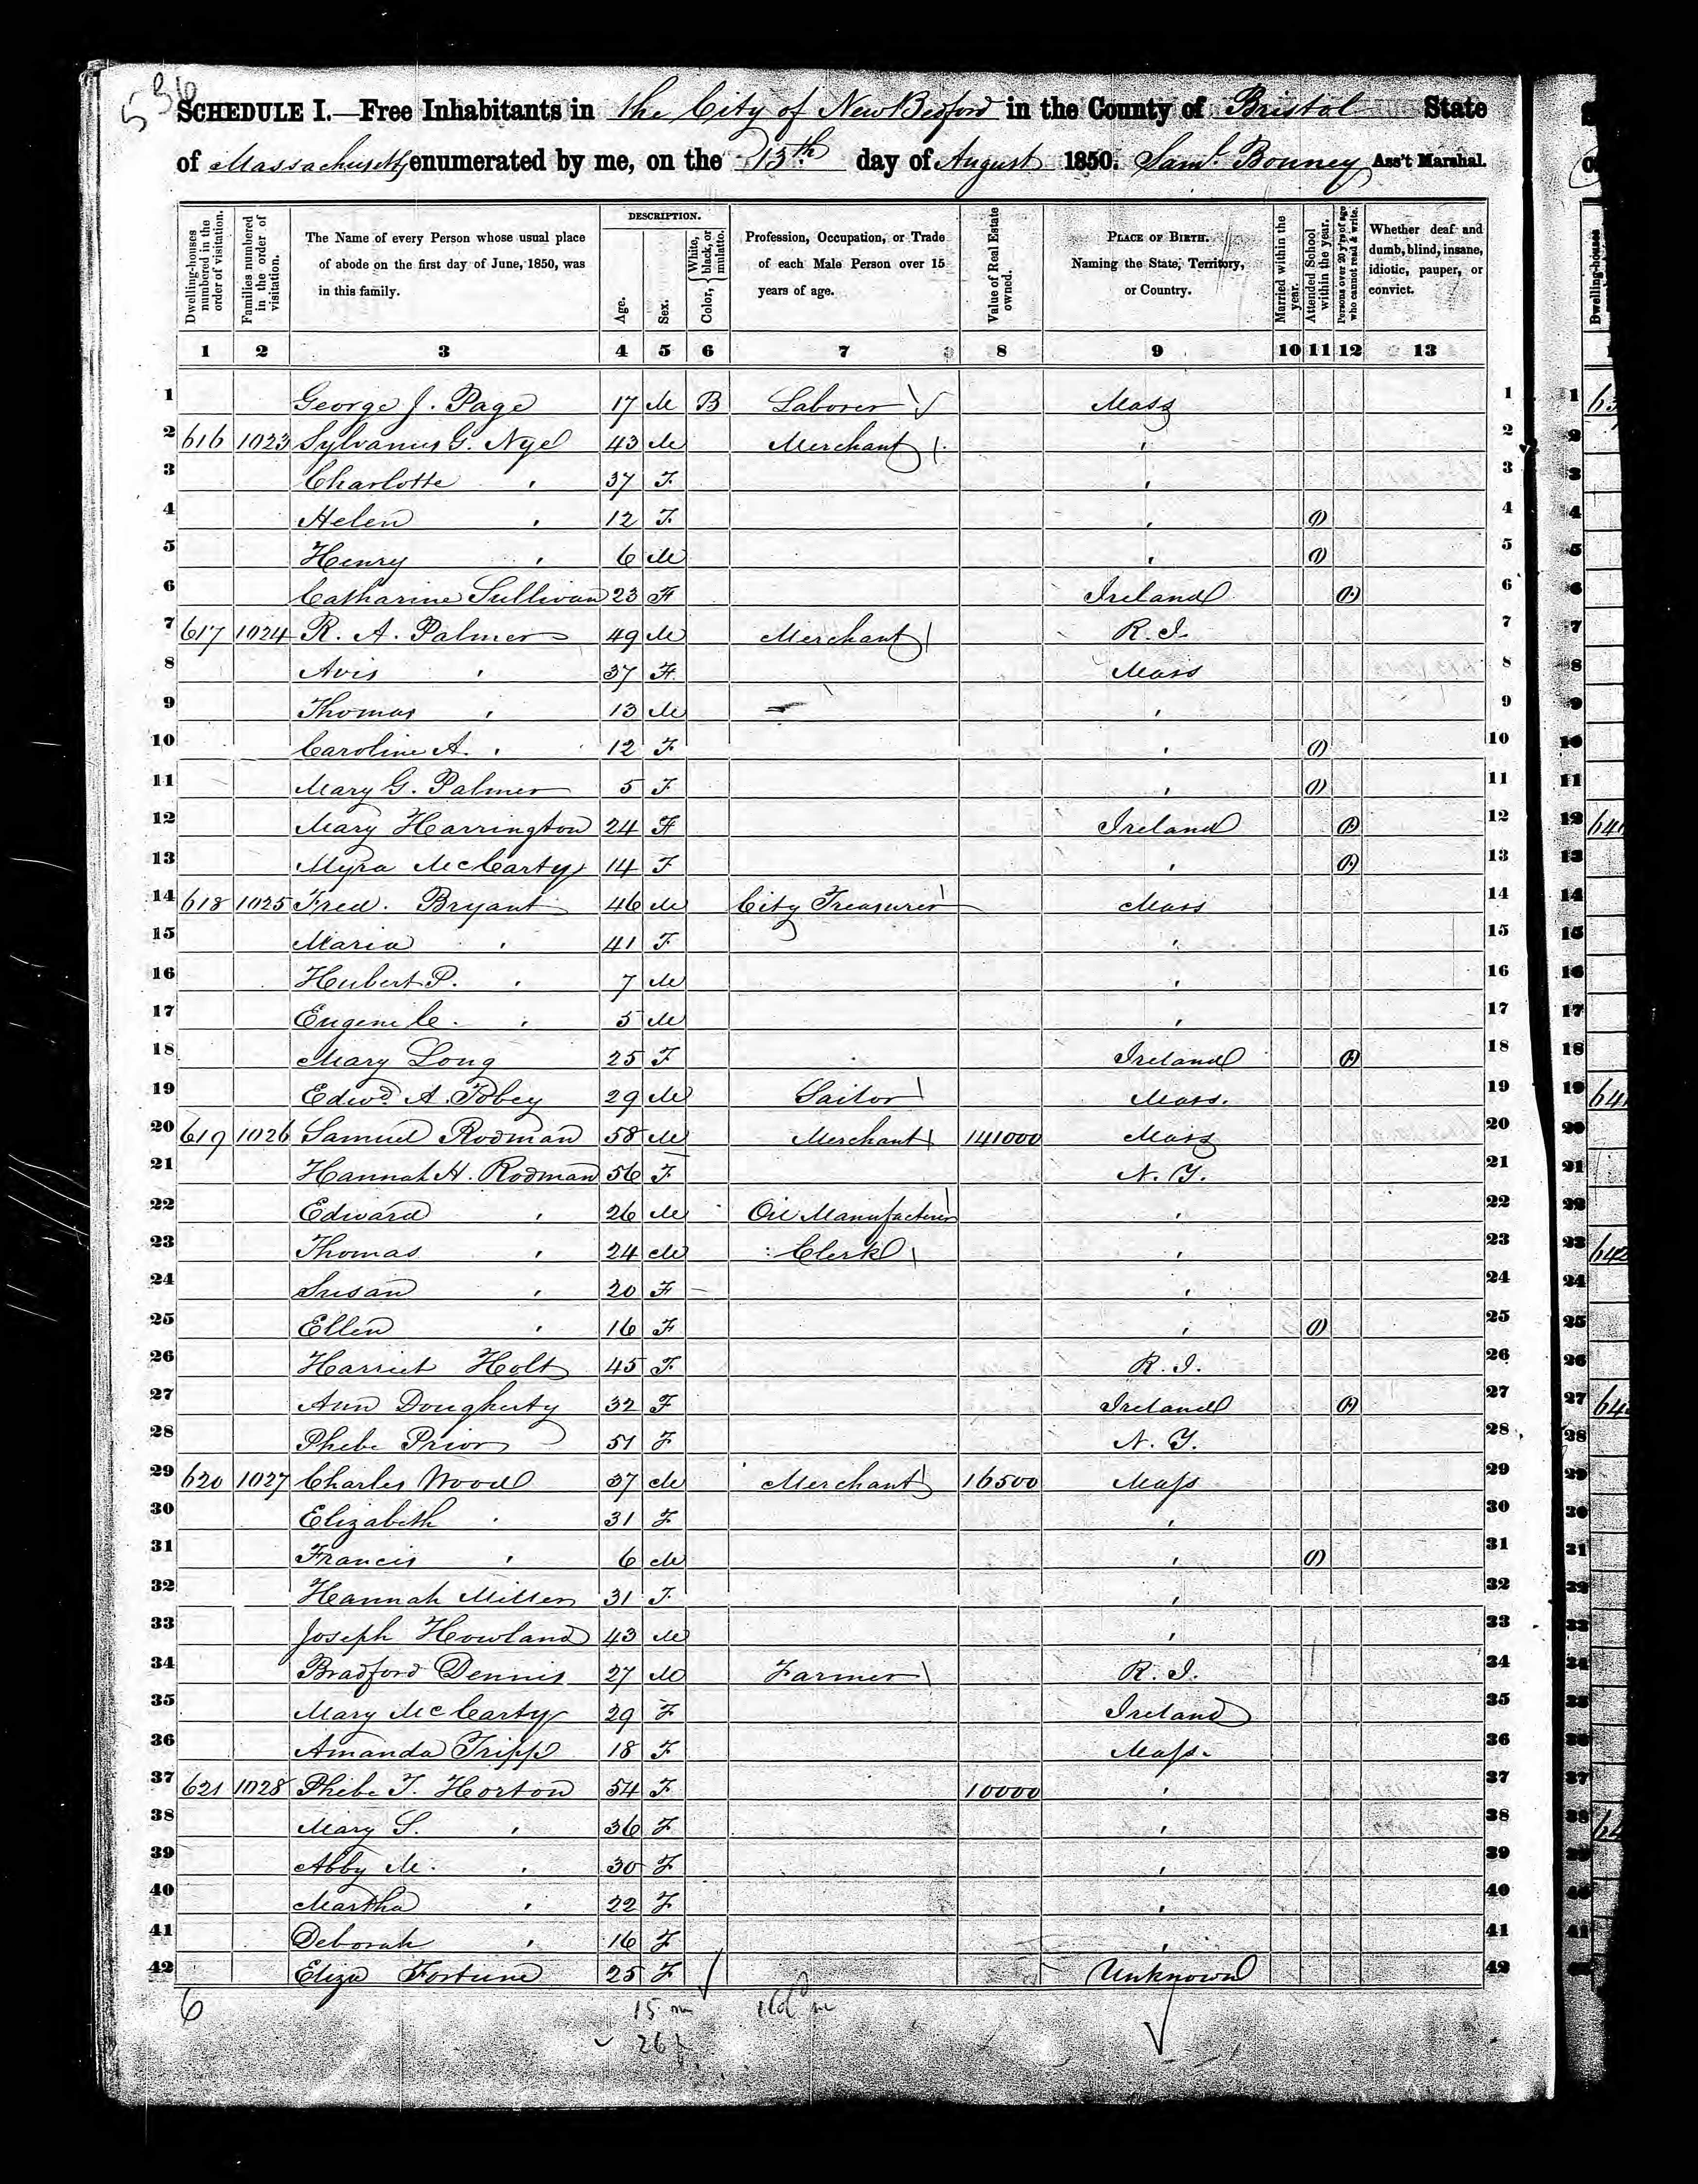 536
SCHEDULE I.—Free Inhabitants in the City of New Bedford in the County of Bristol State
of Massachusetts enumerated by me, on the 15th day of August 1850. Saml. Bonney Ass't Marshal.
Dwelling-houses numbered in the order of visitation.
Families numbered in the order of visitation.
The Name of every Person whose usual place of abode on the first day of June, 1850, was in this family.
DESCRIPTION.
Age.
Sex.
Color, { White, black, or mulatto.
Profession, Occupation, or Trade of each Male Person over 15 years of age.
Value of Real Estate owned.
PLACE OF BIRTH. Naming the State, Territory, or Country.
Married within the year.
Attended School within the year.
Persons over 20 y'rs of age who cannot read & write.
Whether deaf and dumb, blind, insane, idiotic, pauper, or convict.
1 2 3 4 5 6 7 8 9 10 11 12 13
1 George J. Page 17 M B Laborer Mass 1
2 616 1023 Sylvanus G. Nye 43 M Merchant " 2
3 Charlotte " 37 F " 3
4 Helen " 12 F " (1) 4
5 Henry " 6 M " (1) 5
6 Catharine Sullivan 23 F Ireland (1) 6
7 617 1024 R. A. Palmer 49 M Merchant R. I. 7
8 Avis " 37 F Mass 8
9 Thomas " 13 M " 9
10 Caroline A. " 12 F " (1) 10
11 Mary G. Palmer 5 F " (1) 11
12 Mary Harrington 24 F Ireland (1) 12
13 Myra McCarty 14 F " (1) 13
14 618 1025 Fred. Bryant 46 M City Treasurer Mass 14
15 Maria " 41 F " 15
16 Hubert P. " 7 M " 16
17 Eugene C. " 5 M " 17
18 Mary Long 25 F Ireland (1) 18
19 Edwd. A. Tobey 29 M Sailor Mass. 19
20 619 1026 Samuel Rodman 58 M Merchant 141000 Mass 20
21 Hannah H. Rodman 56 F N. Y. 21
22 Edward " 26 M Oil Manufacturer " 22
23 Thomas " 24 M Clerk " 23
24 Susan " 20 F " 24
25 Ellen " 16 F " (1) 25
26 Harriet Holt 45 F R. I. 26
27 Ann Dougherty 32 F Ireland (1) 27
28 Phebe Prior 51 F N. Y. 28
29 620 1027 Charles Wood 37 M Merchant 16500 Mass 29
30 Elizabeth " 31 F " 30
31 Francis " 6 M " (1) 31
32 Hannah Miller 31 F " 32
33 Joseph Howland 43 M " 33
34 Bradford Dennis 27 M Farmer R. I. 34
35 Mary McCarty 29 F Ireland 35
36 Amanda Tripp 18 F Mass. 36
37 621 1028 Phebe T. Horton 54 F 10000 " 37
38 Mary S. " 36 F " 38
39 Abby M. " 30 F " 39
40 Martha " 22 F " 40
41 Deborah " 16 F " 41
42 Eliza Fortune 25 F Unknown 42
6
15 m
26